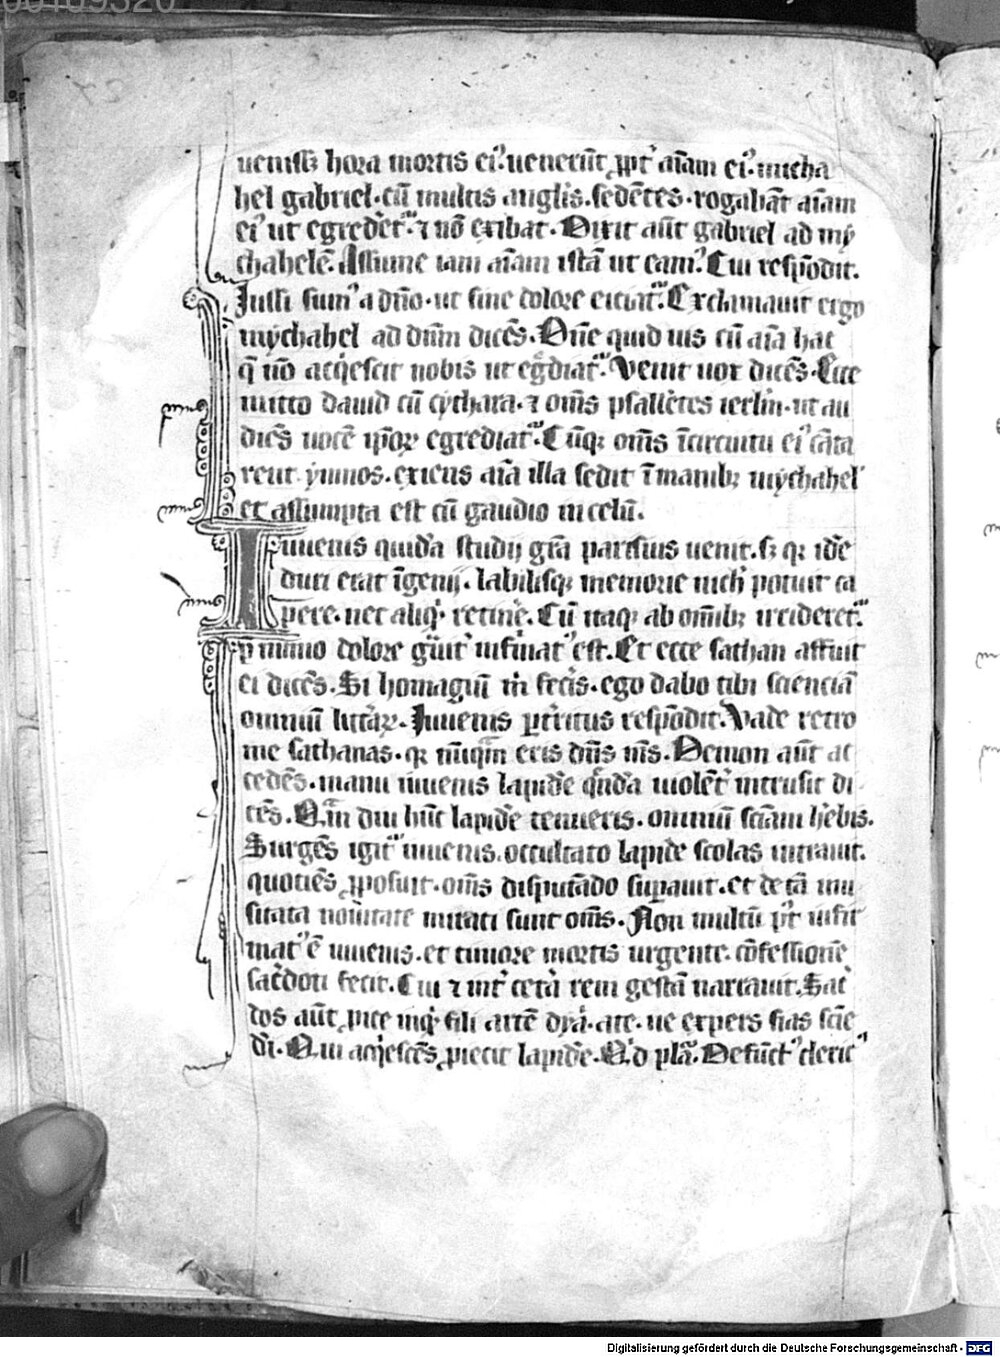 00109320
uenisset hora mortis ei⁹. uenerūt ꝓpt̄ aīam ei⁹. micha
hel gabriel. cū multis anglis. sedētes. rogabāt aīam
ei⁹ ut egrederet᷑. ⁊ nō exibat. Dixit aūt gabriel ad my
chahelē. Assume iam aīam istā ut eam⁹. Cui respōdit.
Iussi sum⁹ a dn̄o. ut sine dolore eiciat᷑. Exclamauit ergo
mychahel ad dn̄m dicēs. Dn̄e quid uis cū aīa hac
q̄ nō acq̇escit nobis ut eg̊diat᷑. Venit uox dicēs. Ecce
mitto dauid cū cythara. ⁊ om̄s psallētes ierl̄m. ut au
diēs uocē ip̄oꝝ egrediat᷑. Cūqꝫ om̄s ī circuitu ei⁹ cāta
rent ymnos. exiens aīa illa sedit ī manibꝫ mychahel
et assumpta est cū gaudio in celū.
Iuuenis quidā studij gr̄a parisius uenit. sꝫ qꝛ idē
duri erat īgenij. labilisqꝫ memorie nichil potuit ca
pere. nec aliq̇d retinere. Cū itaqꝫ ab om̄ibꝫ irrideret᷑.
p̄ nimio dolore grauit̄ infirmat⁹ est. Et ecce sathan affuit
ei dicēs. Si homagiū m̄ fecis. ego dabo tibi scienciā
omniū litt̄aꝝ. Iuuenis ꝑt̄ritus respōdit. Vade retro
me sathanas. qꝛ nūqͣm eris dn̄s m̄s. Demon aūt ac
cedēs. manu iuuenis lapidē qͣndā uiolent̄ intrusit di
cēs. Qͣmdiu hūc lapidē tenueris. omniū sciam hēbis.
Surgēs igit᷑ iuuenis. occultato lapide scolas intrauit.
quotiēs ꝓposuit. om̄s disputādo suꝑauit. et de tā inu
sitata nouitate mirati sunt om̄s. Non multū pt̄ infir
mat⁹ ē iuuenis. et timore mortis urgente. cōfessionē
sac̄doti fecit. Cui ⁊ int̄ cetera rem gestā narrauit. Sac̄
dos aūt ꝓice inq̇t fili artē dyaboli. ait. ne expers fias scīe
dei. Qui acq̇escēs ꝓiecit lapidē. Quid pl̄a. Defūct⁹ cleric⁹
Digitalisierung gefördert durch die Deutsche Forschungsgemeinschaft - DFG